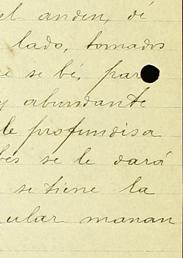 el anden, dé
lado, tomados
se bé, para
y abundante
le profundisa
bés se le dará
se tiene la
ular manan